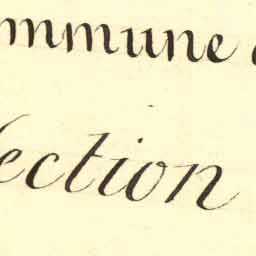 ommune
Section